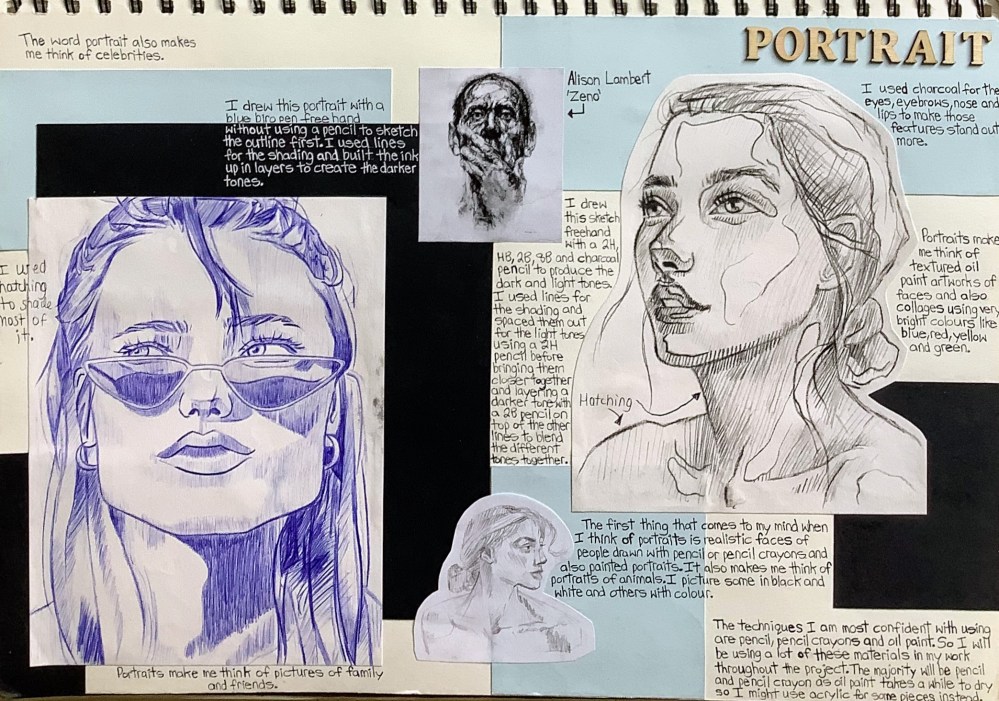 The word portrait also makes
me think of celebrities.
PORTRAIT
I drew this portrait with a
blue biro pen free hand
without using a pencil to sketch
the outline first. I used lines
for the shading and built the ink
up in layers to create the darker
tones.
Alison Lambert
'Zeno'
I used charcoal for the
eyes, eyebrows, nose and
lips to make those
features stand out
more.
I used
hatching
to shade
most of
it.
I drew
this sketch
freehand
with a 2H,
HB, 2B, 8B and charcoal
pencil to produce the
dark and light tones.
I used lines for
the shading and
spaced them out
for the light tones
using a 2H
pencil before
bringing them
closer together
and layering a
darker tone with
a 2B pencil on
top of the other
lines to blend
the different
tones together.
Portraits make
me think of
textured oil
paint artworks of
faces and also
collages using very
bright colours like
blue, red, yellow
and green.
Hatching
The first thing that comes to my mind when
I think of portraits is realistic faces of
people drawn with pencil or pencil crayons and
also painted portraits. It also makes me think of
portraits of animals. I picture some in black and
white and others with colour.
The techniques I am most confident with using
are pencil, pencil crayons and oil paint. So I will
be using a lot of these materials in my work
throughout the project. The majority will be pencil
and pencil crayon as oil paint takes a while to dry
so I might use acrylic for some pieces instead.
Portraits make me think of pictures of family
and friends.